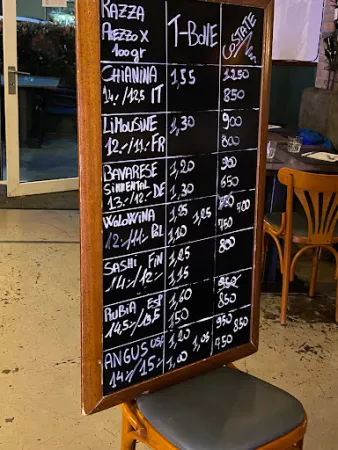 RAZZA
PREZZO X
100 gr
T-BONE
COSTATE
CHIANINA 1,55 1250
14.-/12,5 IT 850
LIMOUSINE 1,30 900
12.-/11.- FR 800
BAVARESE 1,20 900
SIMMENTAL 1,30 650
13.-/12.- DE
1,25 1,25 700
12.-/11.- BL 1,10 750
SASHI FIN 1,25 800
14.-/12.- 1,15
RUBIA ESP 1,60 950
14,5-/13,5 1,50 850
ANGUS USA 1,20 1,05 950 850
14.-/15.- 1,00 750